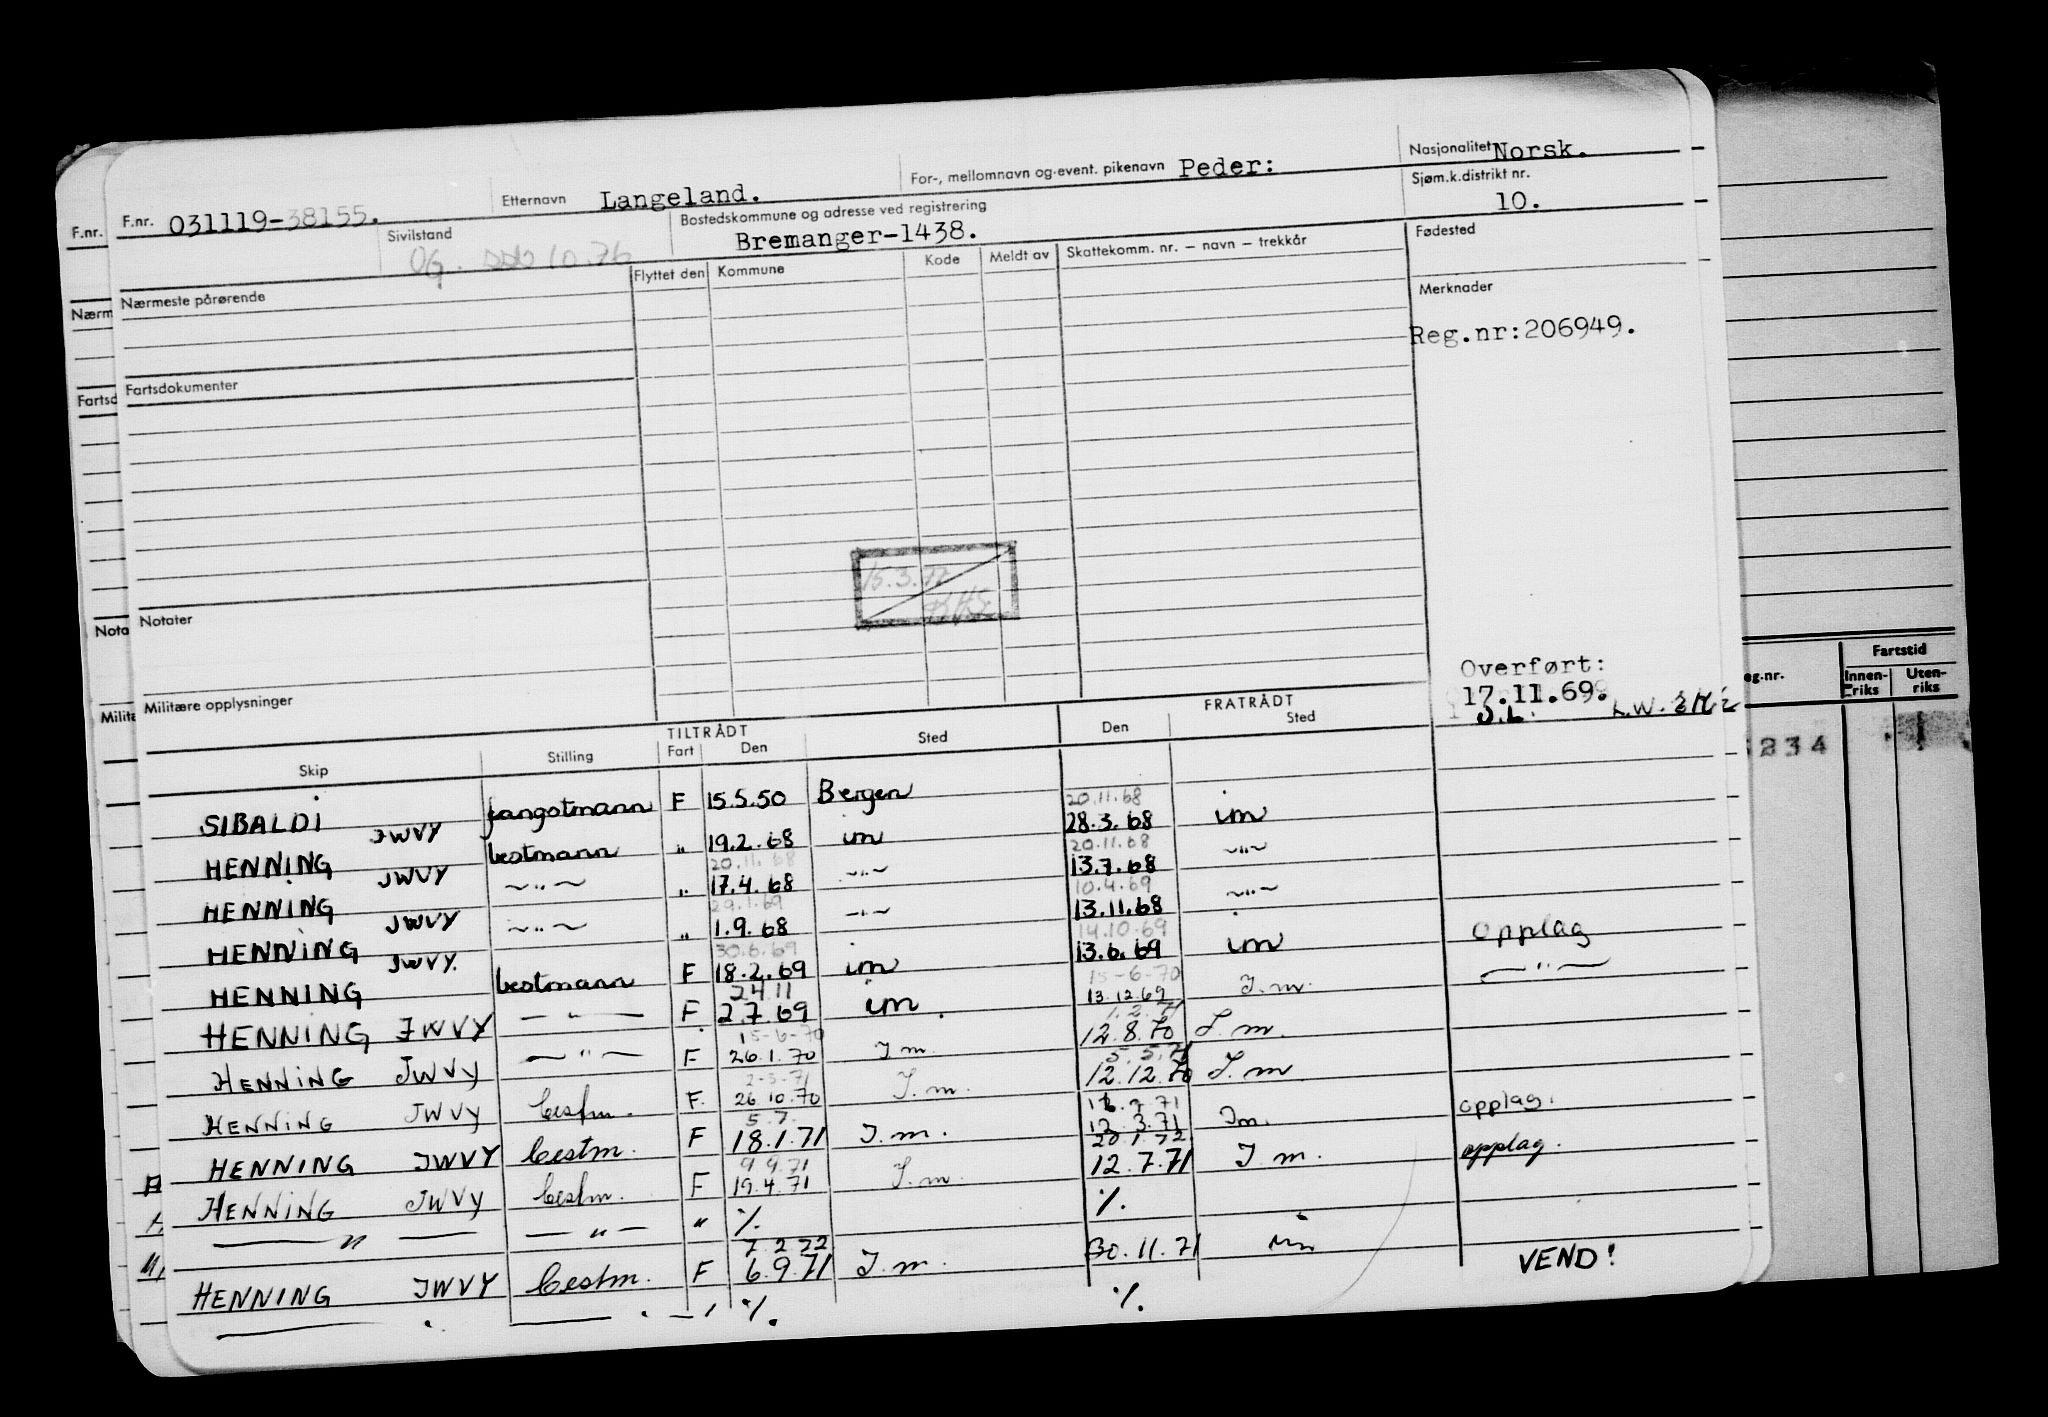 F.nr. 031119-38155. Etternavn Langeland. For-, mellomnavn og event. pikenavn Peder: Nasjonalitet Norsk.
Sivilstand Bostedskommune og adresse ved registrering Bremanger-1438. Sjøm.k.distrikt nr. 10.
F.nr.
Nærm
Nærmeste pårørende Flyttet den Kommune Kode Meldt av Skattekomm. nr. – navn – trekkår Fødested
Merknader
Reg.nr:206949.
Fartsd
Fartsdokumenter
15.3.77
Nota
Notater
Overført:
17.11.69.
J.L.
Milita
Militære opplysninger
eg.nr. Fartstid
Innen-riks Uten-riks
234
TILTRÅDT FRATRÅDT
Skip Stilling Fart Den Sted Den Sted
SIBALDI fangstmann F 15.5.50 Bergen
20.11.68
HENNING JWVY bestmann " 19.2.68 im 28.3.68 im
20.11.68 20.11.68
HENNING JWVY ~"~ " 17.4.68 ~"~ 13.7.68 ~"~
29.1.69 10.4.69
HENNING JWVY ~"~ " 1.9.68 ~"~ 13.11.68 ~"~
30.6.69 14.10.69
HENNING JWVY. bestmann F 18.2.69 im 13.6.69 im Opplag
24.11 15-6-70
HENNING JWVY — " — F 2.7.69 im. 13.12.69 I.m. — " —
15-6-70 1.2.71
HENNING JWVY — " — F 26.1.70 I.m. 12.8.70 I.m.
2-3-71 5.5.71
HENNING JWVY bestm. F. 26.10.70 I.m. 12.12.70 I.m
5.7.
HENNING JWVY bestm. F 18.1.71 I.m. 12.3.71 Im. opplag.
9.9.71 20.1.72
HENNING JWVY bestm. F 19.4.71 I.m. 12.7.71 I.m. opplag.
— " — — " — " %. %.
7.2.72
HENNING JWVY bestm. F 6.9.71 I.m. 30.11.71 im
%. %.
VEND!